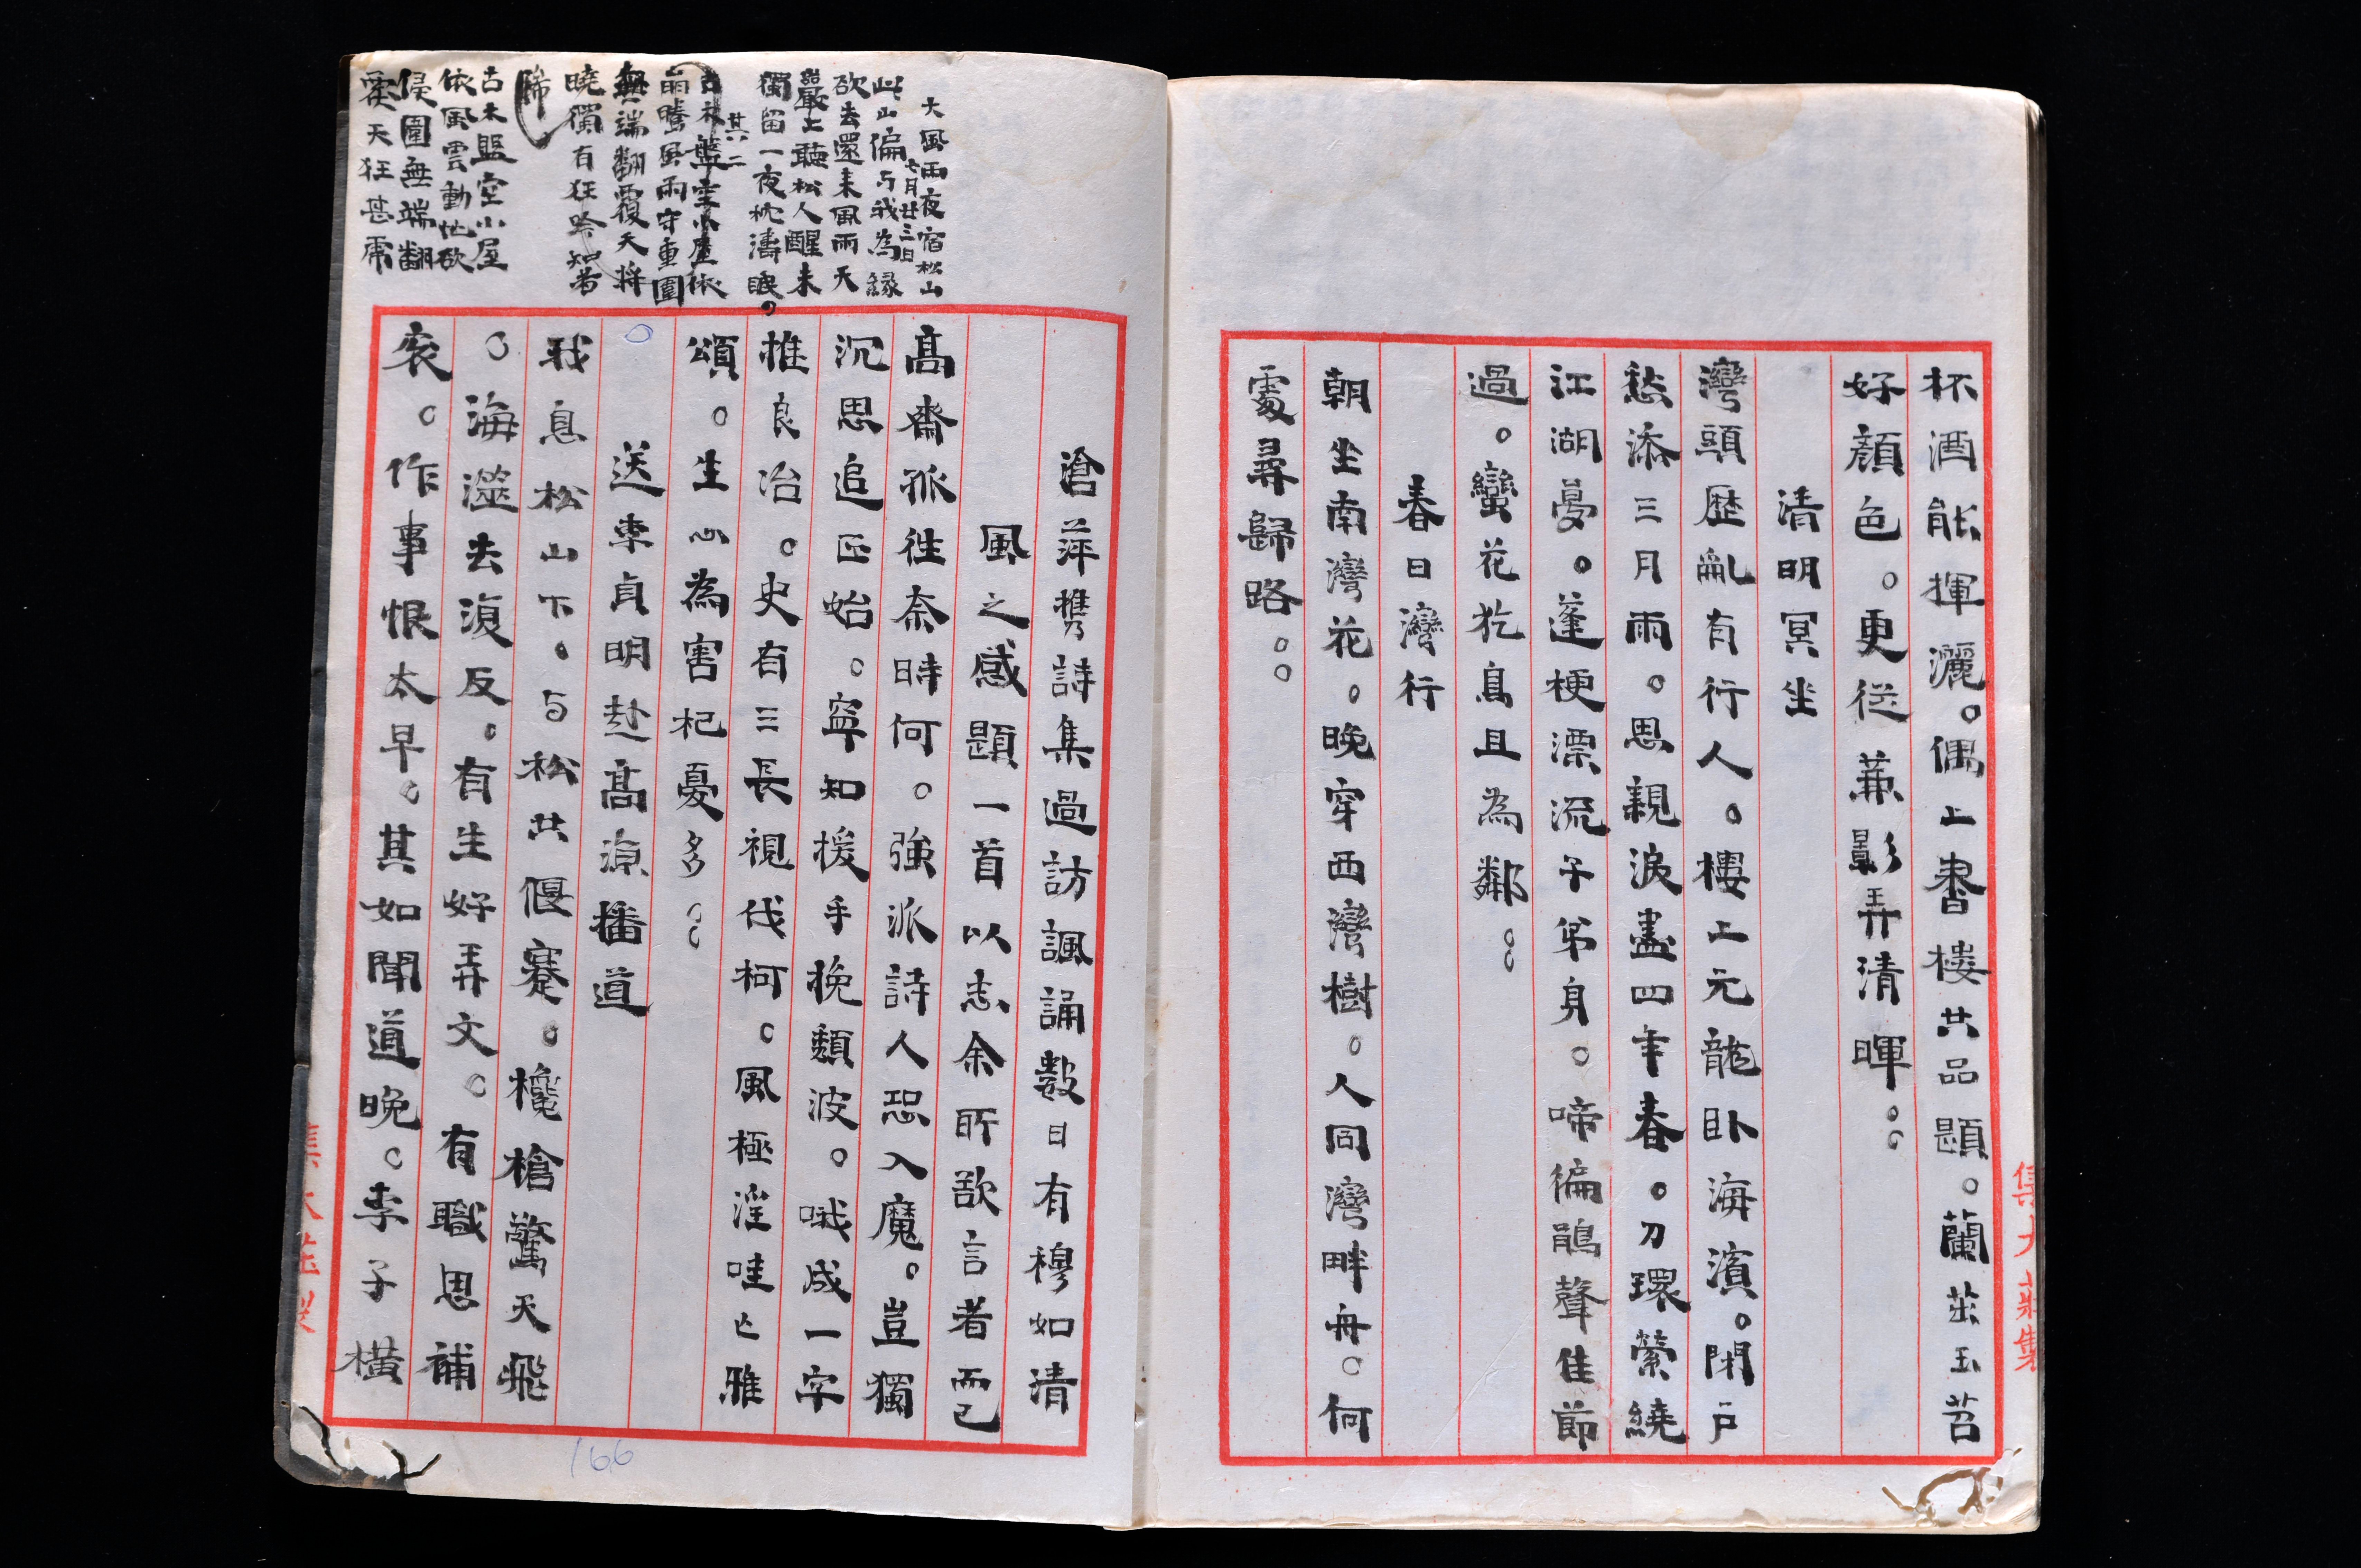 杯酒能揮灑。偶上書樓共品題。蘭茁玉苕
好顏色。更從蕉影弄清暉。。
清明冥坐
灣頭歷亂有行人。樓上元龍臥海濱。閉戶
愁添三月雨。思親淚盡四年春。刀環縈繞
江湖夢。蓬梗漂流子弟身。啼徧鵑聲佳節
過。蠻花犵鳥且為鄰。。
春日灣行
朝坐南灣花。晚穿西灣樹。人同灣畔舟。何
處尋歸路。。
集大莊製
大風雨夜宿松山
七月廿三日
此山偏与我為緣
欲去還來風雨天
巖上聽松人醒未
獨留一夜枕濤眠。
其二
古木盤空小屋依
崩騰風雨守重圍
無端翻覆天將
曉獨有狂吟知者
稀
古木盤空小屋
依風雲動地欲
侵圍無端翻
覆天狂甚
滄萍攜詩集過訪諷誦數日有穆如清
風之感題一首以志余所欲言者而已
高齋孤往奈時何。強派詩人恐入魔。豈獨
沉思追正始。寧知援手挽頹波。哦成一字
推良冶。史有三長視伐柯。風極淫哇亡雅
頌。生心為害杞憂多。。
送李貞明赴高涼播道
我息松山下。与松共偃蹇。欃槍驚天飛
。海澨去復反。有生好弄文。有職思補
袞。作事恨太早。其如聞道晚。李子橫
集大莊製
166